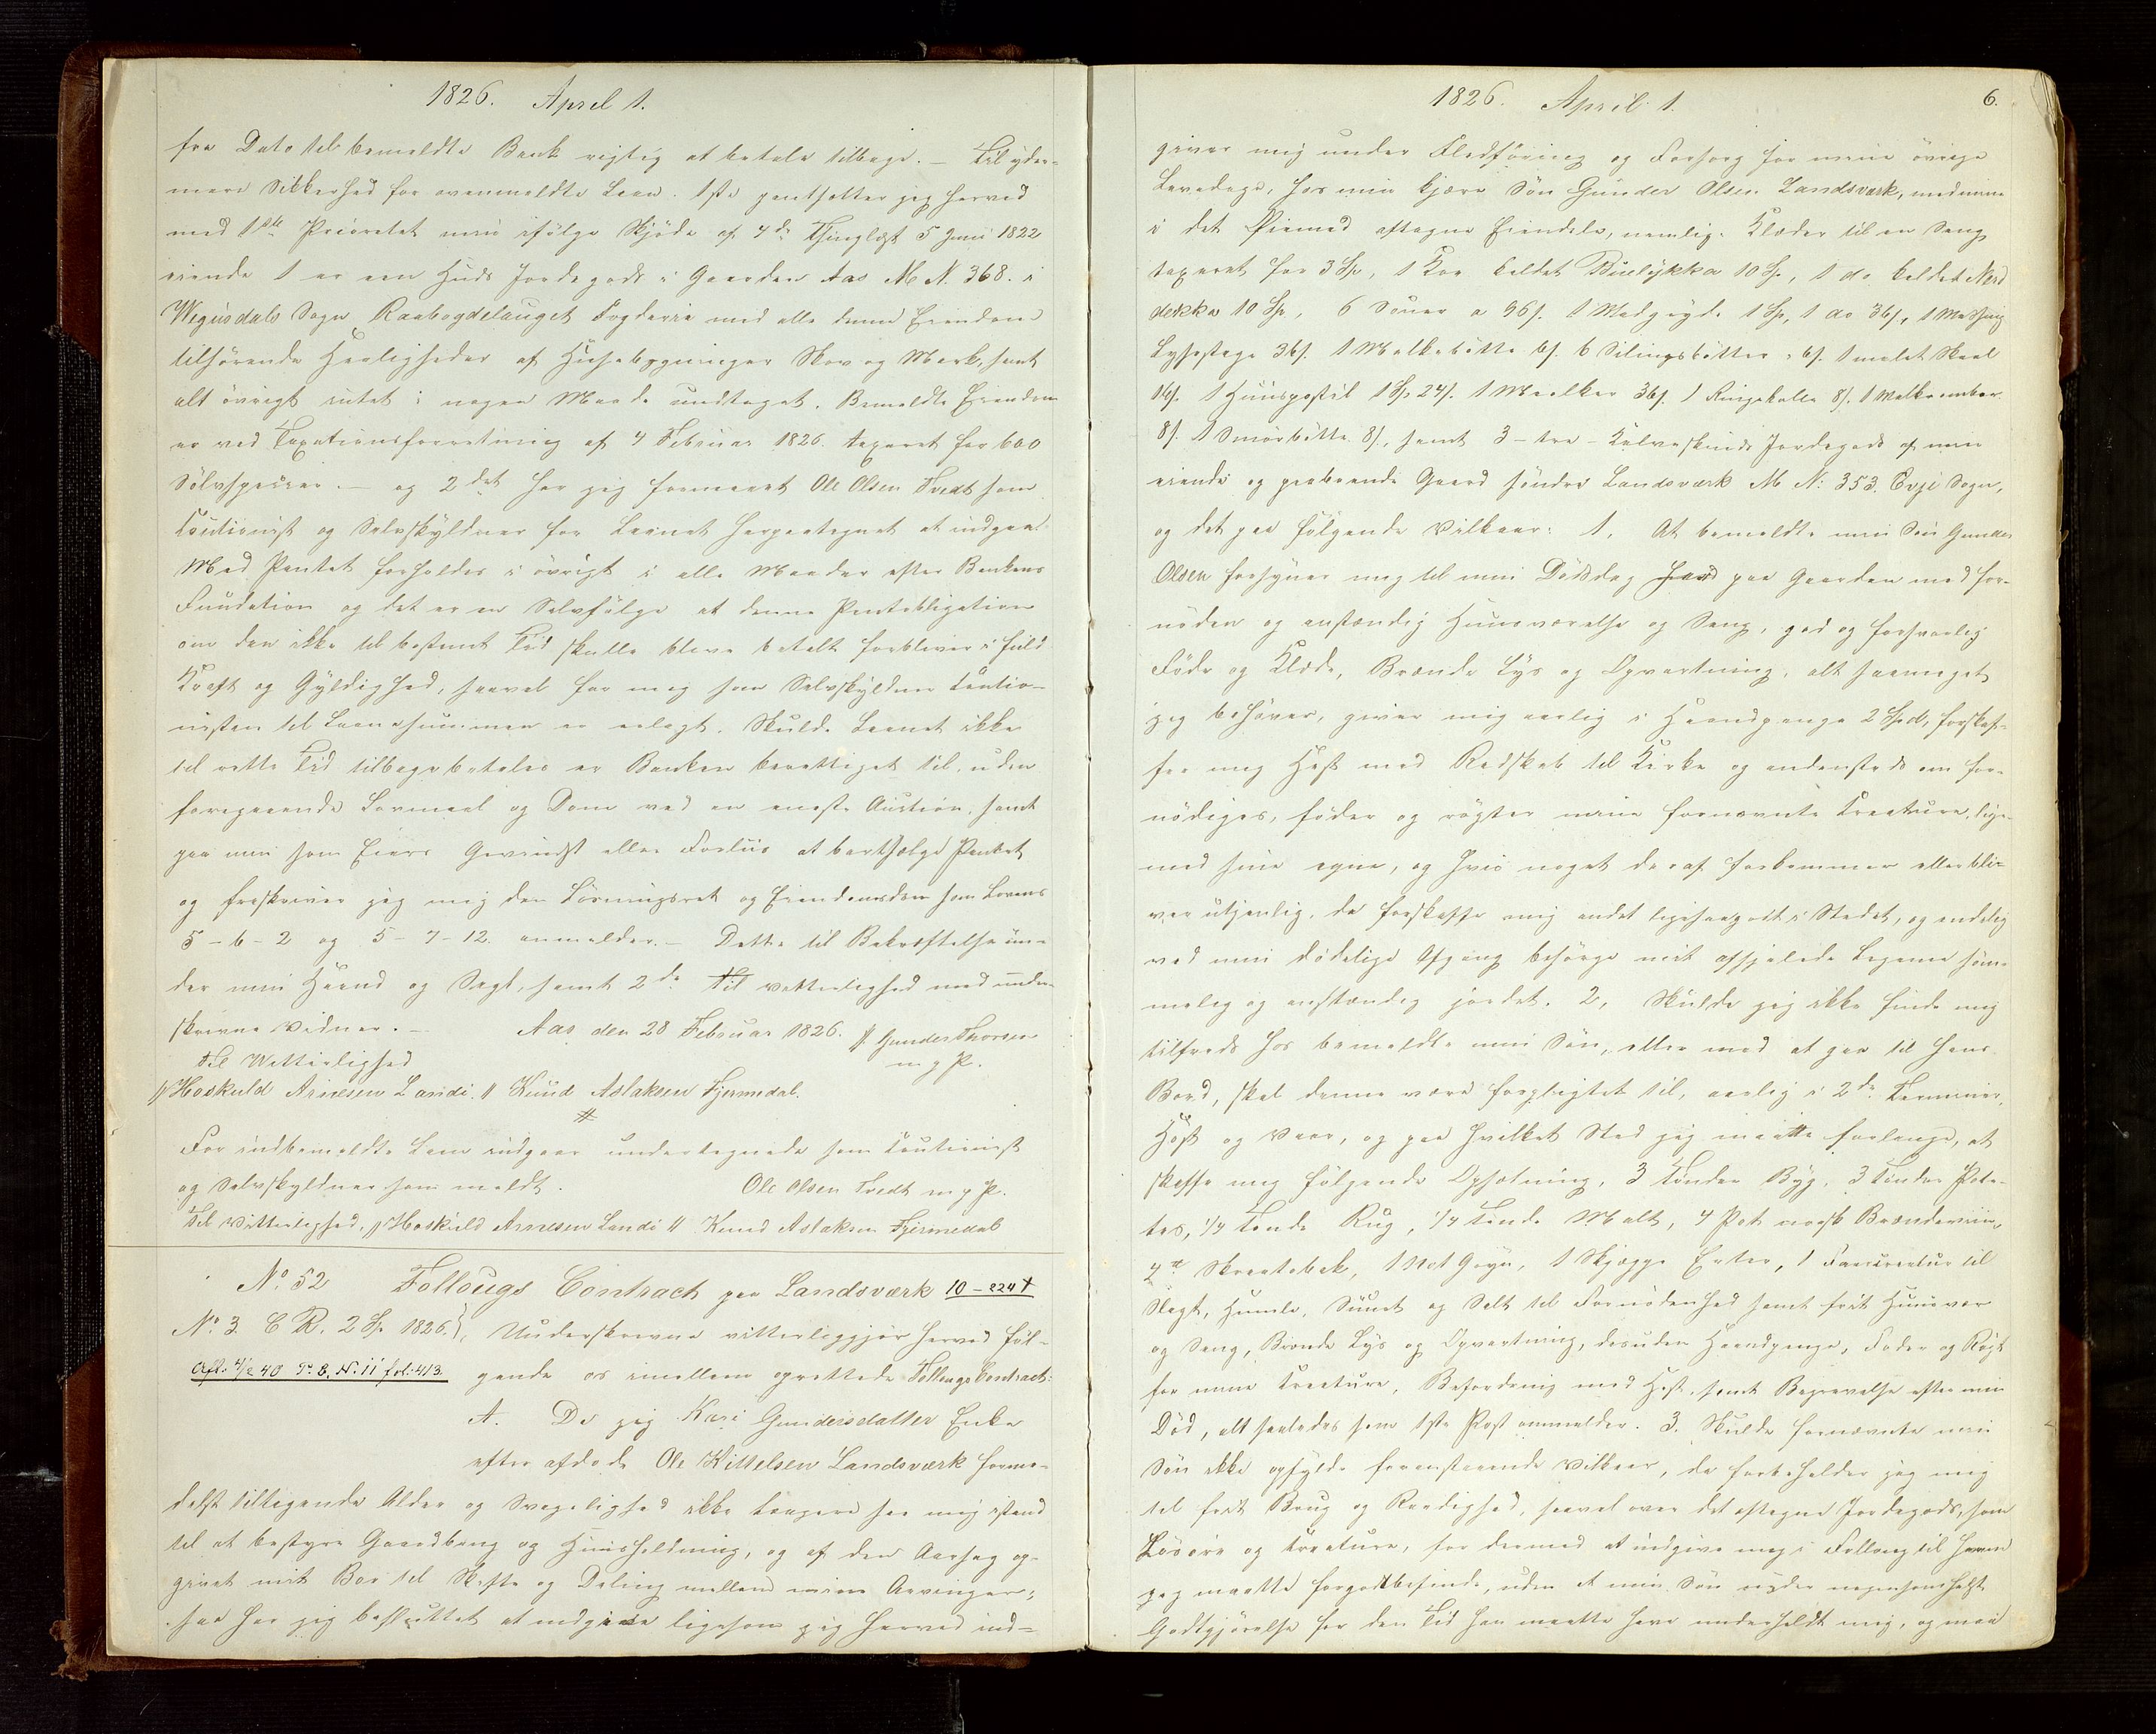 1826. April 1.
fra Dato til bemeldte Bank rigtig at betale tilbage. – Til yder-
mere Sikkerhed for ovenmeldte Laan. 1ste pantsetter jeg herved
med 1ste Prioretet min ifølge Skjøde af 4de Thinglæst 5 Juni 1822
eiende 1 er een Huds Jordegods i Gaarden Aas M N. 368. i
Wegusdals Sogn Raabogdelauget Fogderie med alle denne Eiendom
tilhørende Herligheder af Husebygninger Skov og Mark, samt
alt øvrigt intet i nogen Maade undtaget. Bemeldte Eiendom
er ved Taxationsforretning af 4 Februar 1826. taxeret for 600
Sølvspesier. – og 2det har jeg formaaet Ole Olsen Tvedt som
Coutionist og Selvskyldner for Laanet herpaategnet at indgaae
Med Pantet forholdes i øvrigt i alle Maader efter Bankens
Fundation og det er en Selvfølge at denne Pantobligation
om den ikke til bestemt Tid skulle blive betalt forbliver i fuld
Kraft og Gyldighed, saavel for mig som Selvskyldner Cautio-
nisten til Laanesummen er erlagt. Skulde Laanet ikke
til rette Tid tilbagebetales er Banken berettiget til, uden
foregaaende Lovmaal og Dom ved en eneste Auction, samt
paa min som Eiers Gevindst eller Forliis at bortsælge Pantet
og fraskriver jeg mig den Løsningsret og Eiendomsdom som Lovens
5-6-2 og 5-7-12. ommelder. – Dette til Bekræftelse un-
der min Haand og Segl, samt 2de til vitterlighed med under-
skrivne Vidner. – Aas den 28 Februar 1826. // Gunder Thorsen
Til Witterlighed m. p. P.
// Hoskuld Arnesen Landi. // Knud Aslaksen Fjermedal.
#
For indbemeldte Laan indgaar undertegnede som Coutionist
og Selvskyldner som meldt. Ole Olsen Tvedt m. p. P.
Til Vitterlighed, // Hoskuld Arnesen Landi // Knud Aslaksen Fjermedal
No. 52 Follougs Contract paa Landsværk 10-224 †
No. 3 C R. 2 Sp 1826. Underskrevne vitterliggjør herved føl-
Afl. 4/2 40 P: B. N: 11 fol: 413. gende os imellem oprettede Follougs Contract:
A. Da jeg Kari Gundersdatter Enke
efter afdøde Ole Kittelsen Landsværk forme-
delst tiltagende Alder og Svagelighed ikke længere har mig istand
til at bestyre Gaardbrug og Huusholdning, og af den Aarsag op-
givet mit Boe til Skifte og Deling mellem mine Arvinger;
saa har jeg besluttet at indgive ligesom jeg herved ind-
1826. April 1. 6.
giver mig under Fledføring og Forsorg for mine øvrige
Levedage, hos min kjære Søn Gunder Olsen Landsværk, medgivne
i det Øiemed aftagne Eiendele, nemlig: Klæder til en Seng
taxeret for 3 Sp, 1 Koe kaldet Buelykka 10 Sp, 1 do kaldet Nerd
dekka 10 Sp, 6 Souer a 96 s. 1 Madgryde 1 Sp, 1 do 36 s, 1 Messing
Lysestage 36 s. 1 Malkebøtte 6 s. 6 Silingsbøtter 6 s. 1 malet Skaal
16 s. 1 Huuspostil 1 Sp 24 s. 1 36 s. 1 Ringekolle 8 s. 1
8 s. 1 Smørbøtte 8 s, samt 3 – tre – Kalveskinds Jordegods af min
eiende og paaboende Gaard søndre Landsværk M N: 353. Evje Sogn,
og det paa følgende Vilkaar: 1, At bemeldte min Søn Gunder
Olsen forsyner mig til min Dødsdag her paa Gaarden med for-
nøden og anstændig Huusværelse og Seng, god og forsvarlig
Føde og Klæde, Brænde Lys og Opvartning, alt saameget
jeg behøver, giver mig aarlig i Haandpenge 2 Spd, forskaf-
fer mig Hest med Redskab til Kirke og andensteds om for-
nødiges, føder og røgter mine fornævnte Creature, lige-
med sine egne, og hvis noget deraf forkommer eller bli-
ver utjenlig, da forskaffe mig andet ligesaagodt i Stedet, og endelig
ved min dødelige Afgang besørge mit afsjælede Legeme søm-
melig og anstændig jordet. 2, Skulde jeg ikke finde mig
tilfreds hos bemeldte min Søn, eller med at gaa til hans
Bord, skal denne være forpligtet til, aarlig i 2de Terminer,
Høst og Vaar, og paa hvilket Sted jeg maatte forlange, at
skaffe mig følgende Opsætning, 3 Tønder Byg, 3 Tønder Pota-
tes, 1/4 Tønde Rug, 1/4 Tønde Malt, 4 Pot norsk Brændeviin,
Skraatobak, 1 Gryn, 1 Skjæppe Erter, 1 til
Slagt, Humle, og Salt til Fornødenhed samt frit Huusvær
og Seng, Brænde Lys og Opvartning, desuden Haandpenge, Foder og Røgt
for mine Creature, Befordring med Hest, samt Begravelse efter min
Død, alt saaledes som 1ste Post ommelder. 3. Skulde fornævnte min
Søn ikke opfylde foranstaaende Vilkaar, da forbeholder jeg mig
til frit Brug og Raadighed, saavel over det aftagne Jordegods, som
Løsøre og Creature, for dermed at indgive mig i Folloug til hvem
jeg maatte forgodtbefinde, uden at min Søn nyder nogensomhelst
Godtgjørelse for den Tid han maatte have underholdt mig, og med